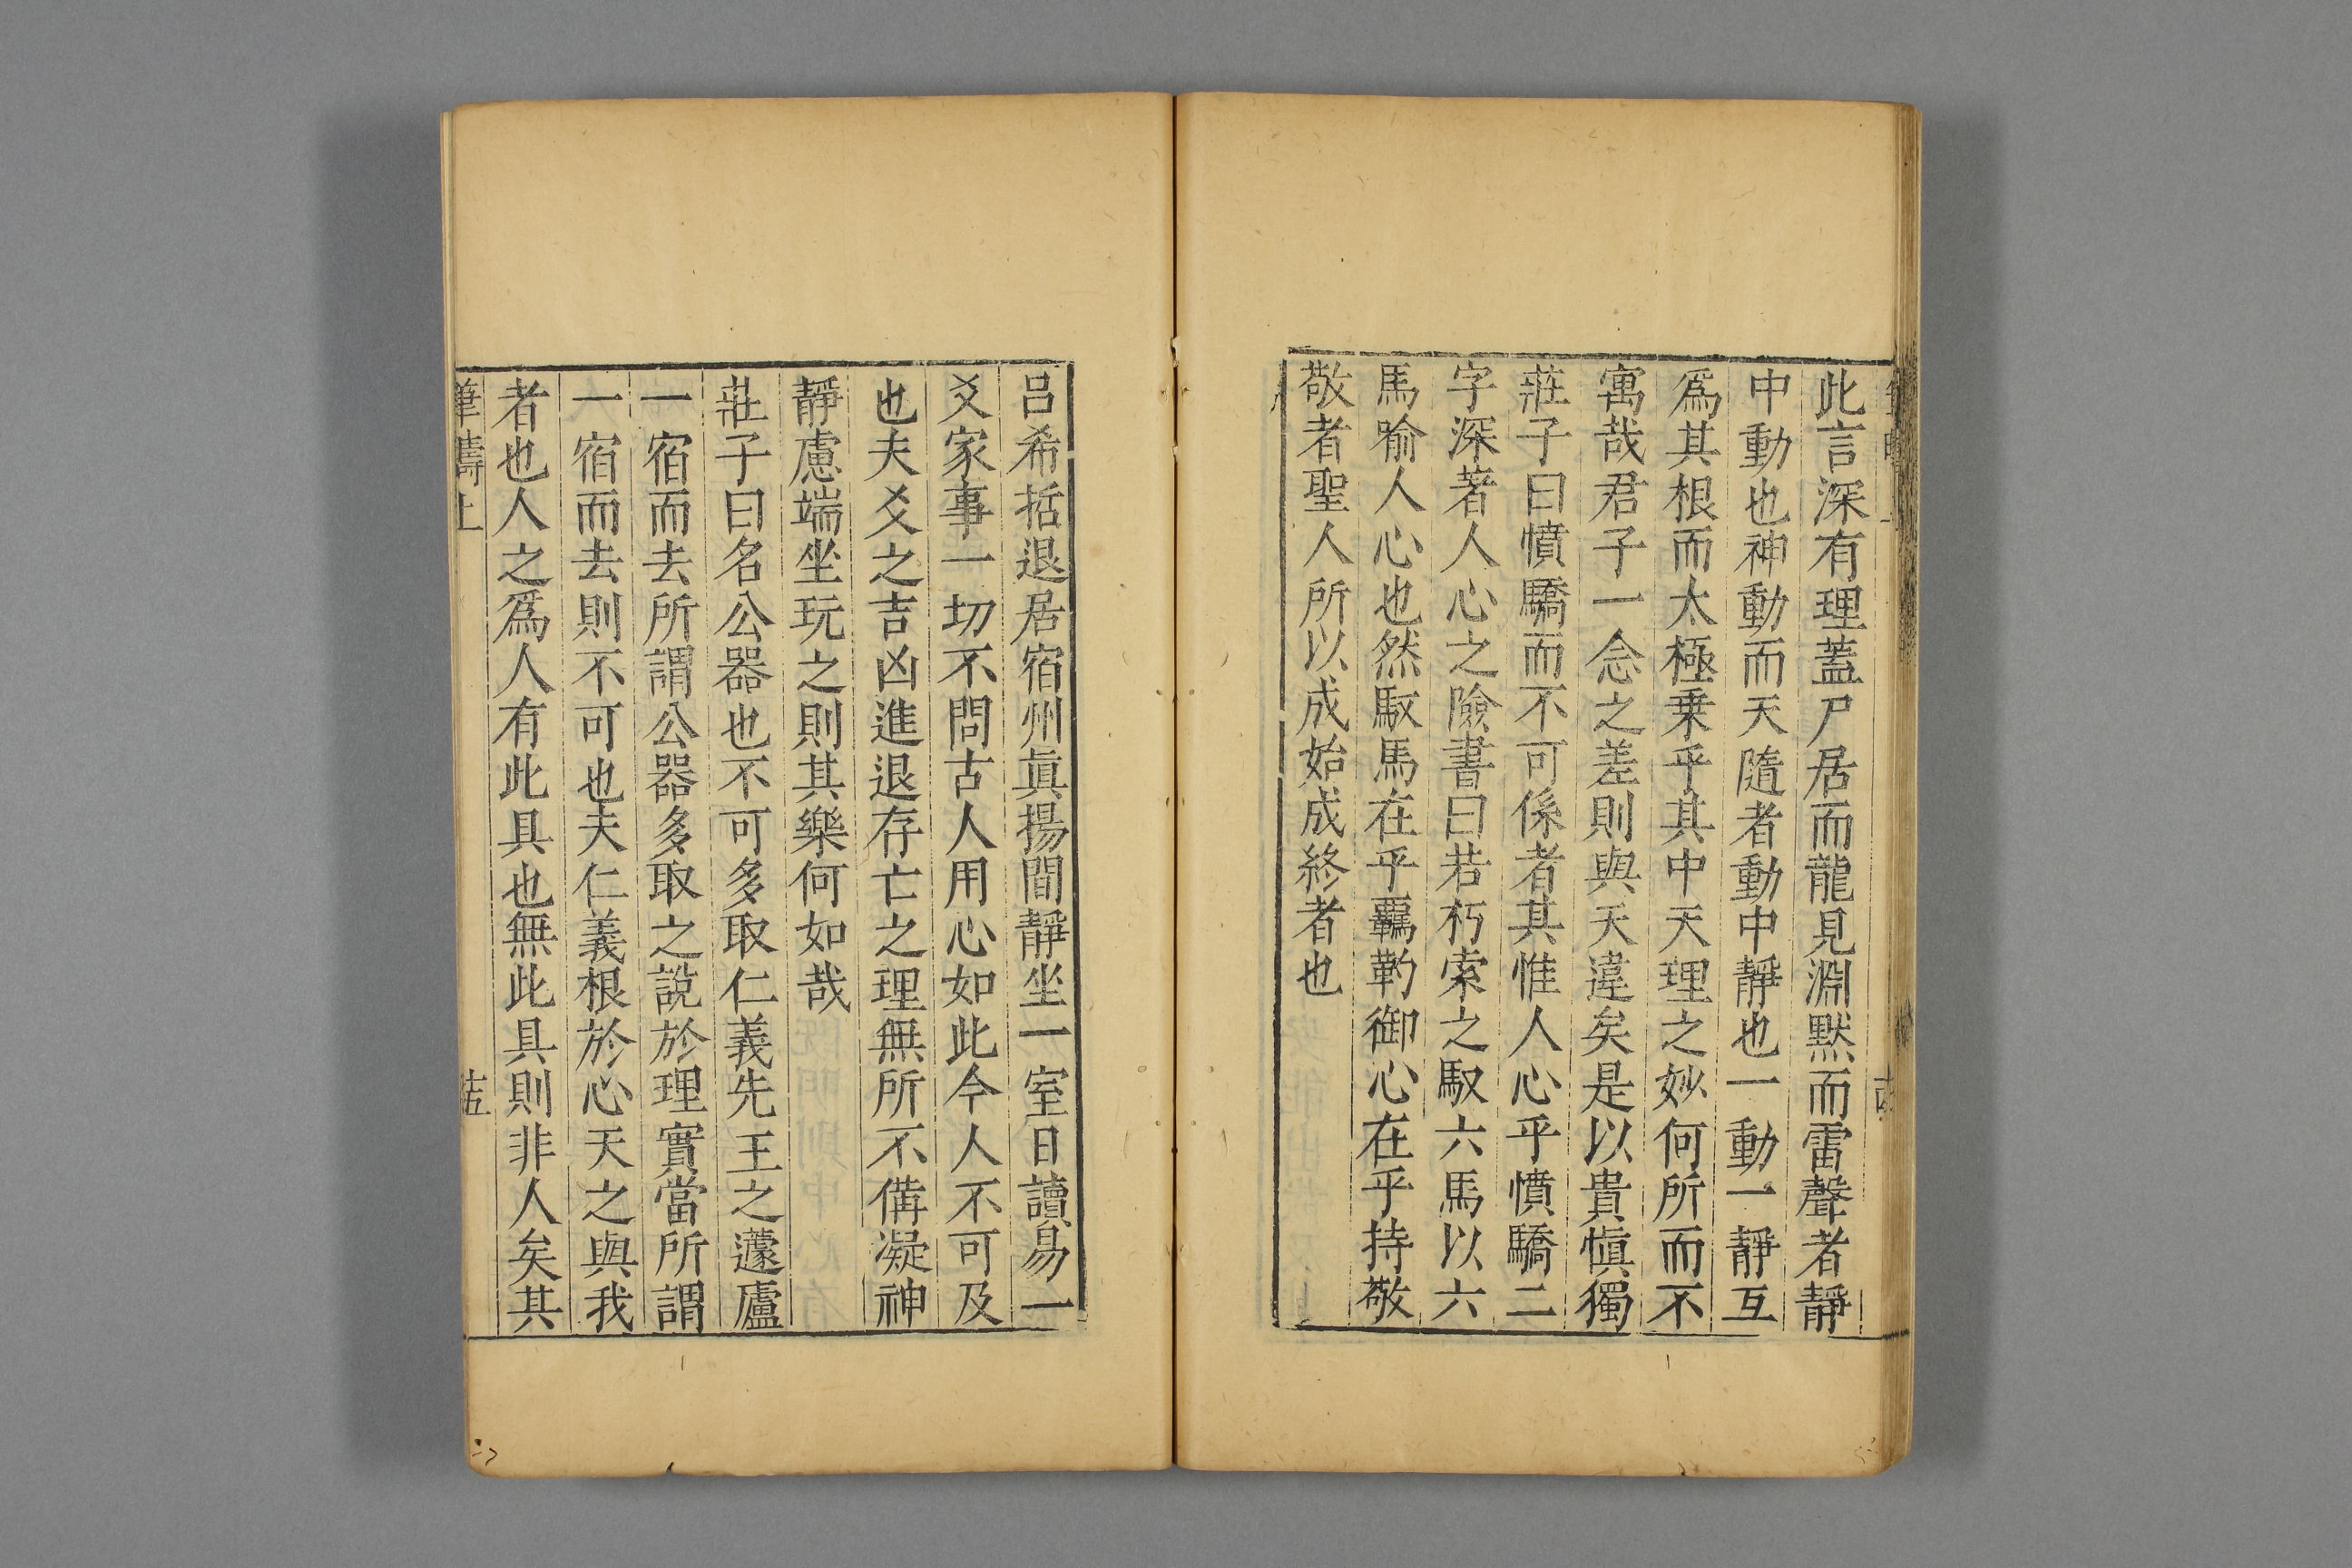 此言深有理蓋尸居而龍見淵默而雷聲者靜
中動也神動而天隨者動中靜也一動一靜互
爲其根而太極乗乎其中天理之妙何所而不
寓哉君子一念之差則與天違矣是以貴愼獨
莊子曰憤驕而不可係者其惟人心乎憤驕二
字深著人心之險書曰若朽索之馭六馬以六
馬喻人心也然馭馬在乎羈靮御心在乎持敬
敬者聖人所以成始成終者也
呂希括退居宿州眞揚間靜坐一室日讀易一
爻家事一切不問古人用心如此今人不可及
也夫爻之吉凶進退存亡之理無所不備凝神
靜慮端坐玩之則其樂何如哉
莊子曰名公器也不可多取仁義先王之蘧廬
一宿而去所謂公器多取之說於理實當所謂
一宿而去則不可也夫仁義根於心天之與我
者也人之爲人有此具也無此具則非人矣其
筆疇上